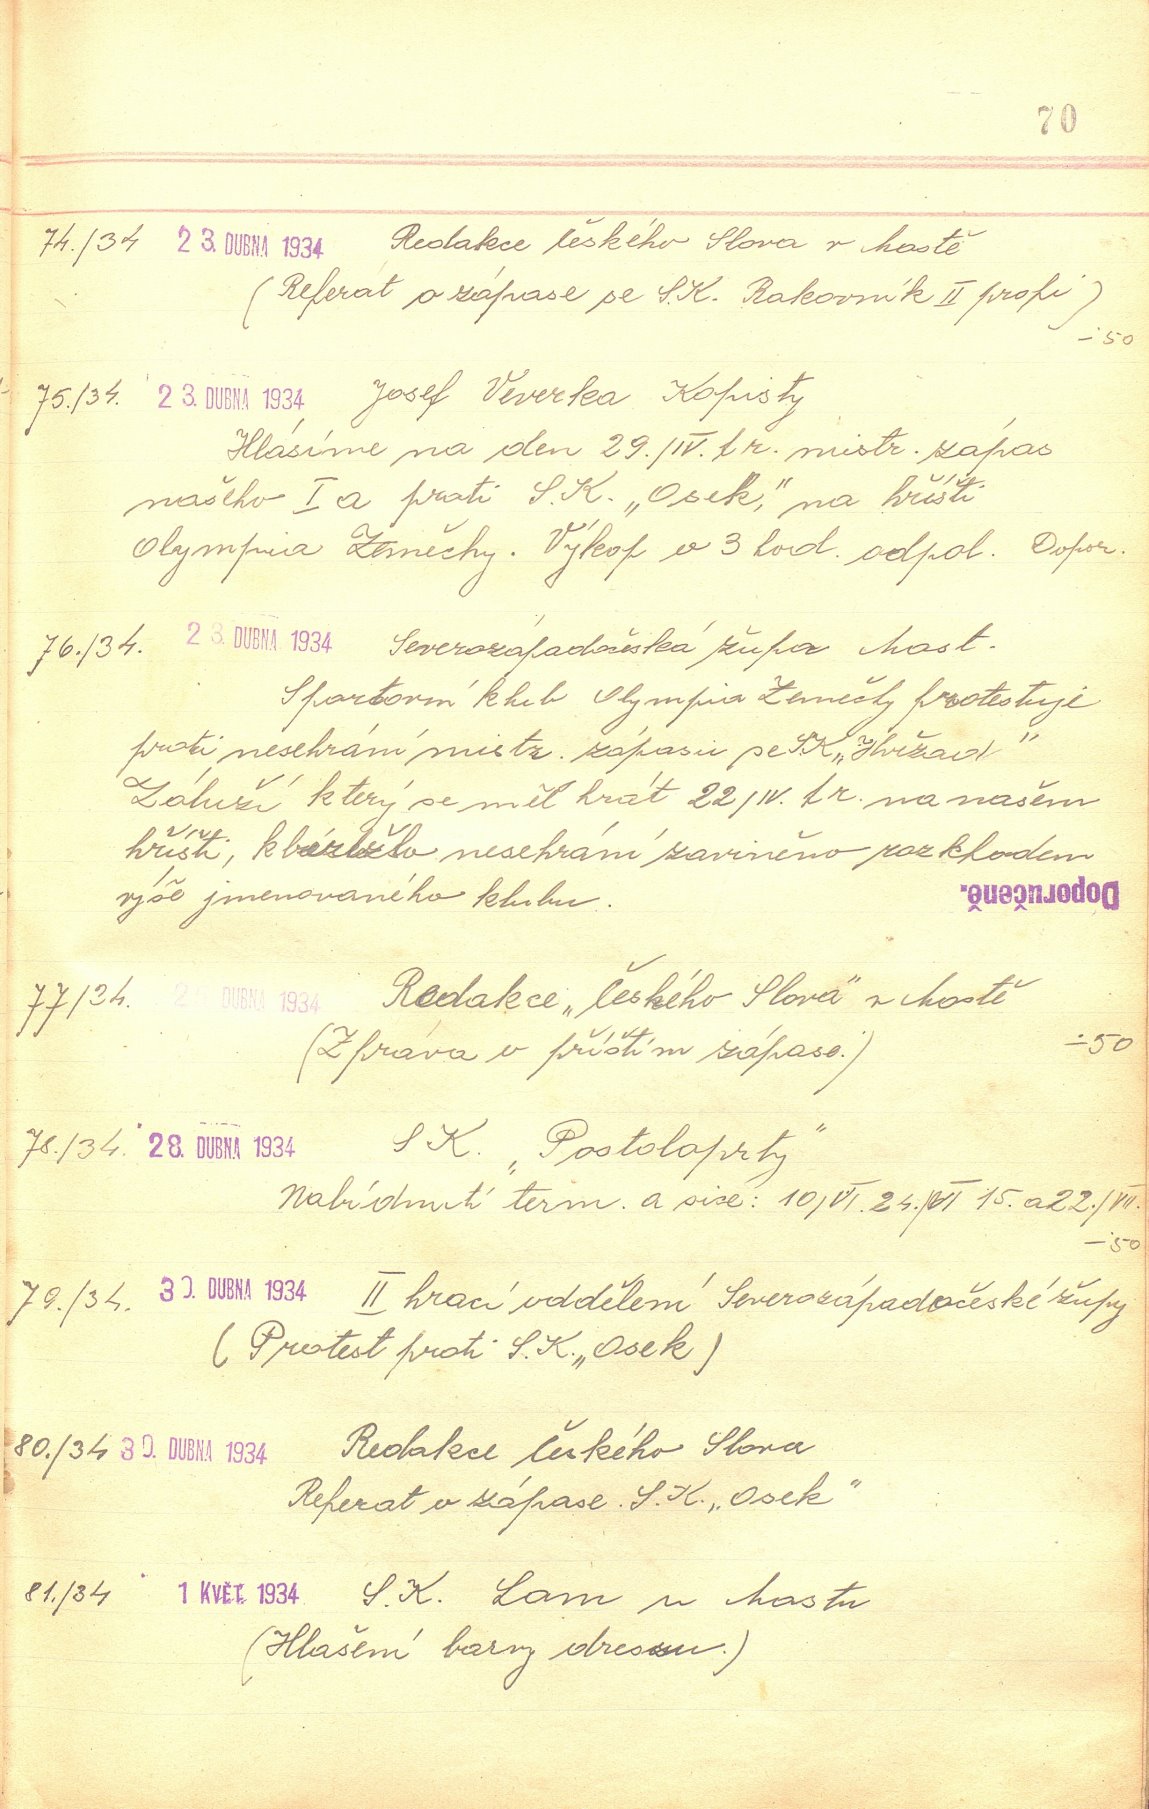 70
74./34 23. DUBNA 1934 Redakce Českého Slova v Mostě
(Referát o zápase se S.K. Rakovník II profi)
–˙50
75./34. 23. DUBNA 1934 Josef Veverka Kopisty
Hlásíme na den 29./IV. t.r. mistr. zápas
našeho I a proti S.K. „Osek," na hřišti
Olympia Zeměchy. Výkop o 3 hod. odpol. Dopor.
76./34. 23. DUBNA 1934 Severozápadočeská župa Most.
Sportovní klub Olympia Zeměchy protestuje
proti nesehrání mistr. zápasu se S.K.
Záluží který se měl hrát 22/IV. t.r. na našem
hřišti, nesehrání zaviněno rozkladem
výše jmenovaného klubu. Doporučeně.
77/34. DUBNA 1934 Redakce „Českého Slova" v Mostě
(Zpráva o příštím zápase.) –˙50
78./34. 28. DUBNA 1934 S K. „Postoloprty"
Nabídnutí term. a sice: 10/VI. 24./VI 15. a 22./VII.
–˙50
79./34. 30. DUBNA 1934 II hrací oddělení Severozápadočeské župy
(Protest proti S.K. „Osek)
80./34 30. DUBNA 1934 Redakce Českého Slova
Referat o zápase S.K. „Osek"
81./34 1 KVĚT. 1934 S.K. Lom u Mostu
(Hlašení barvy dressu.)